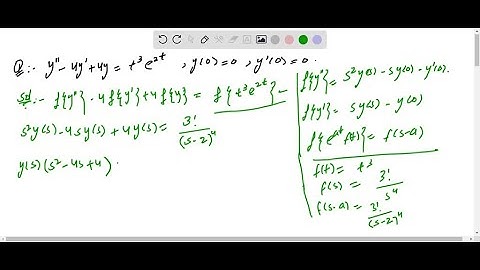 Q:- y'' - 4y' + 4y = t³e^{2t} , y(0) = 0 , y'(0) = 0.
Sol:- £{y''} - 4£{y'} + 4£{y} = £{t³e^{2t}} -
s²y(s) - 4sy(s) + 4y(s) = 3!/(s-2)⁴
y(s)(s² - 4s + 4) .
£{y''} = s²y(s) - sy(0) - y'(0).
£{y'} = sy(s) - y(0)
£{e^{at}f(t)} = f(s-a)
f(t) = t³
f(s) = 3!/s⁴
f(s-a) = 3!/(s-2)⁴